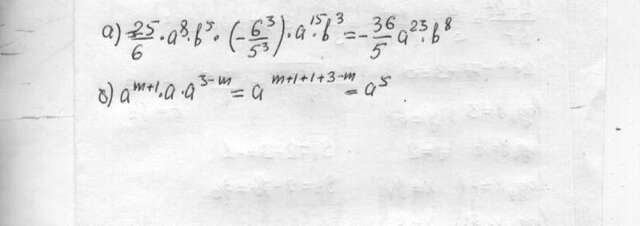 а) 25/6 · a⁸ · b⁵ · (-6³/5³) · a¹⁵ · b³ = -36/5 a²³ · b⁸
б) a^(m+1) · a · a^(3-m) = a^(m+1+1+3-m) = a⁵